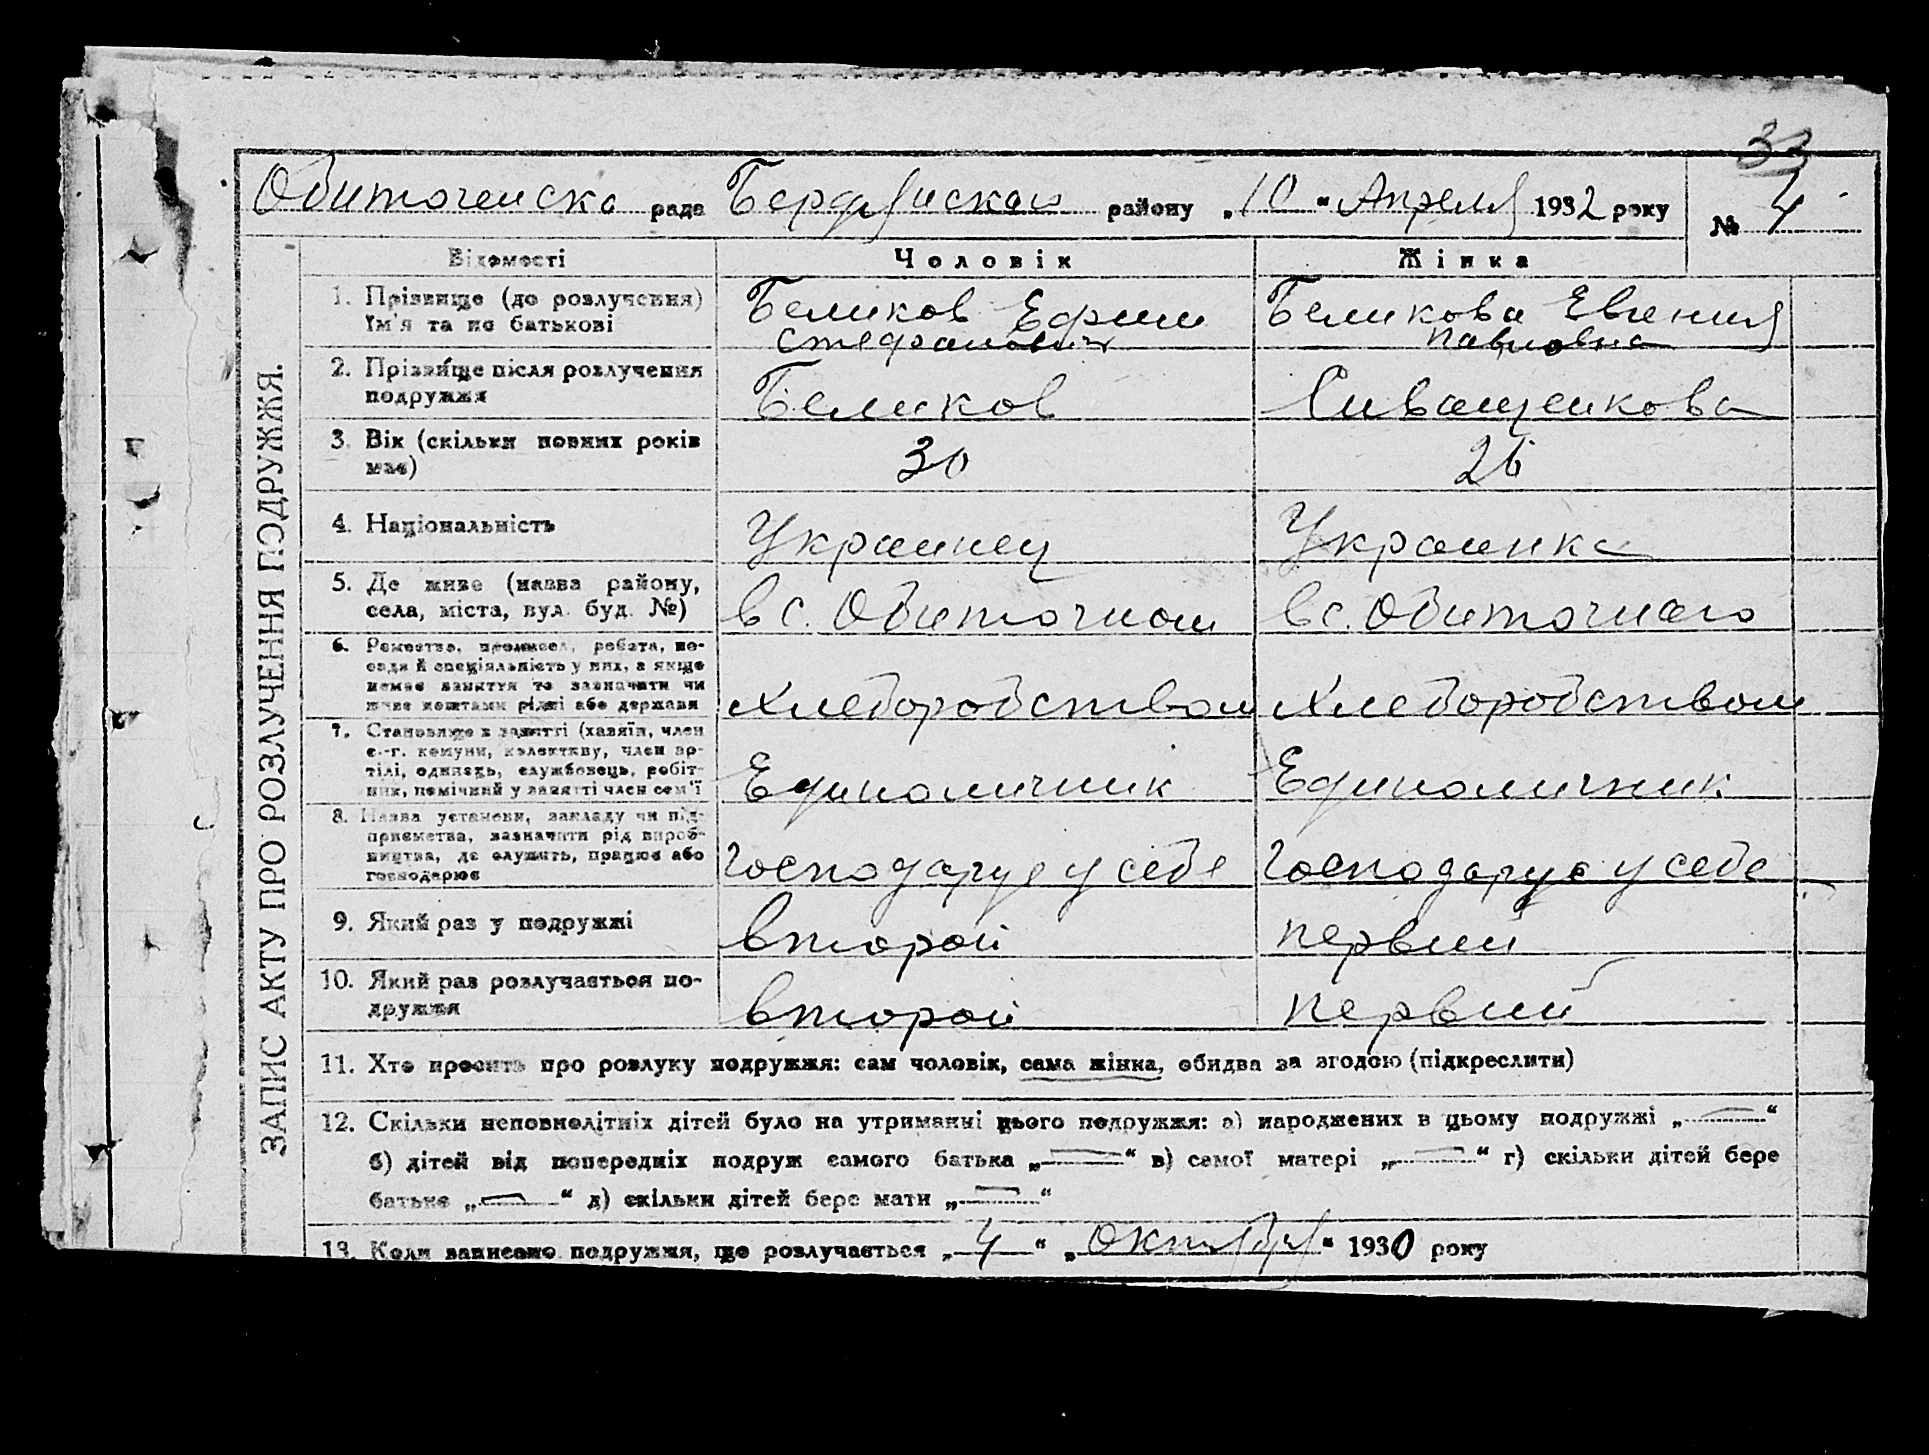 33
Обиточенска рада Бердянского району „10“ Апреля 1932 року
№ 4
ЗАПИС АКТУ ПРО РОЗЛУЧЕННЯ ПОДРУЖЖЯ.
Відомості Чоловік Жінка
1. Прізвище (до розлучення) Беликов Ефим Беликова Евгения
їм'я та по батькові Стефанович Павловна
2. Прізвище після розлучення
подружжя Беликов Сиващенкова
3. Вік (скільки повних років 30 26
має)
4. Національність Украинец Украинка
5. Де живе (назва району,
села, міста, вул. буд. №) в с. Обиточном в с. Обиточного
6. Ремество, промисел, робота, по-
сада й спеціяльність у них, а якщо
немає заняття то зазначити чи
живе коштами рідні або держави Хлеборобством Хлеборобством
7. Становище в занятті (хазяїн, член
с.-г. комуни, колективу, член ар-
тілі, одинець, службовець, робіт-
ник, помічний у занятті член сем'ї Единоличник Единоличник
8. Назва установи, закладу чи під-
приємства, зазначити рід вироб-
ництва, де служить, працює або
господарює Господарує у себе Господарує у себе
9. Який раз у подружжі второй первий
10. Який раз розлучається по-
дружжя второй первий
11. Хто просить про розлуку подружжя: сам чоловік, сама жінка, обидва за згодою (підкреслити)
12. Скільки неповнолітніх дітей було на утриманні цього подружжя: а) народжених в цьому подружжі „—“
б) дітей від попередніх подруж самого батька „—“ в) самої матері „—“ г) скільки дітей бере
батько „—“ д) скільки дітей бере мати „—“
13. Коли записано подружжя, що розлучається „4“ „Октября“ 1930 року